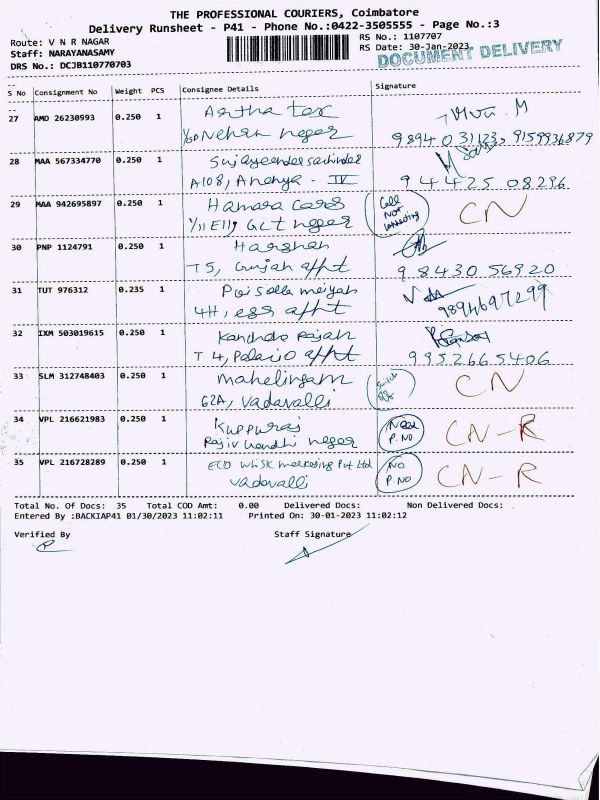 THE PROFESSIONAL COURIERS, Coimbatore
Delivery Runsheet - P41 - Phone No.:0422-3505555 - Page No.:3
Route: V N R NAGAR
RS No.: 1107707
Staff: NARAYANASAMY
RS Date: 30-Jan-2023
DOCUMENT DELIVERY
DRS No.: DCJB110770703
S No Consignment No Weight PCS Consignee Details Signature
27 AMD 26230993 0.250 1 Artha tex
Nehru nagar 98940 31233, 9159936879
28 MAA 567334770 0.250 1
A108, Ananya - IV 94425 08296
29 MAA 942695897 0.250 1 Hamara cars Call Not CN
1/11 E11, GCT nagar
30 PNP 1124791 0.250 1 Harshan
T5, Gunjan appt 98430 56920
31 TUT 976312 0.235 1
4H, ess appt 9894697299
32 IXM 503019615 0.250 1 Rajan
T 4, appt 9952665406
33 SLM 312748403 0.250 1 Mahalingam Switch off CN
62A, Vadavalli
34 VPL 216621983 0.250 1 Kuppuraj Need P.NO CN-R
Rajiv Gandhi nagar
35 VPL 216728289 0.250 1 ECO Whisk marketing Pvt Ltd NO P.NO CN-R
Vadavalli
Total No. Of Docs: 35 Total COD Amt: 0.00 Delivered Docs: Non Delivered Docs:
Entered By :BACKIAP41 01/30/2023 11:02:11 Printed On: 30-01-2023 11:02:12
Verified By Staff Signature